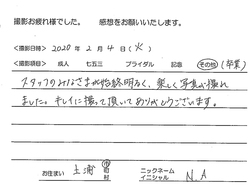 撮影お疲れ様でした。　感想をお願いいたします。
<撮影日時> 2020年 2月 4日 (火)
<撮影項目> 成人 七五三 ブライダル 記念 その他 (卒業)
スタッフのみなさまが始終明るく、楽しく写真が撮れ
ました。キレイに撮って頂いてありがとうございます。
お住まい 土浦 市 町 村 ニックネーム イニシャル N.A